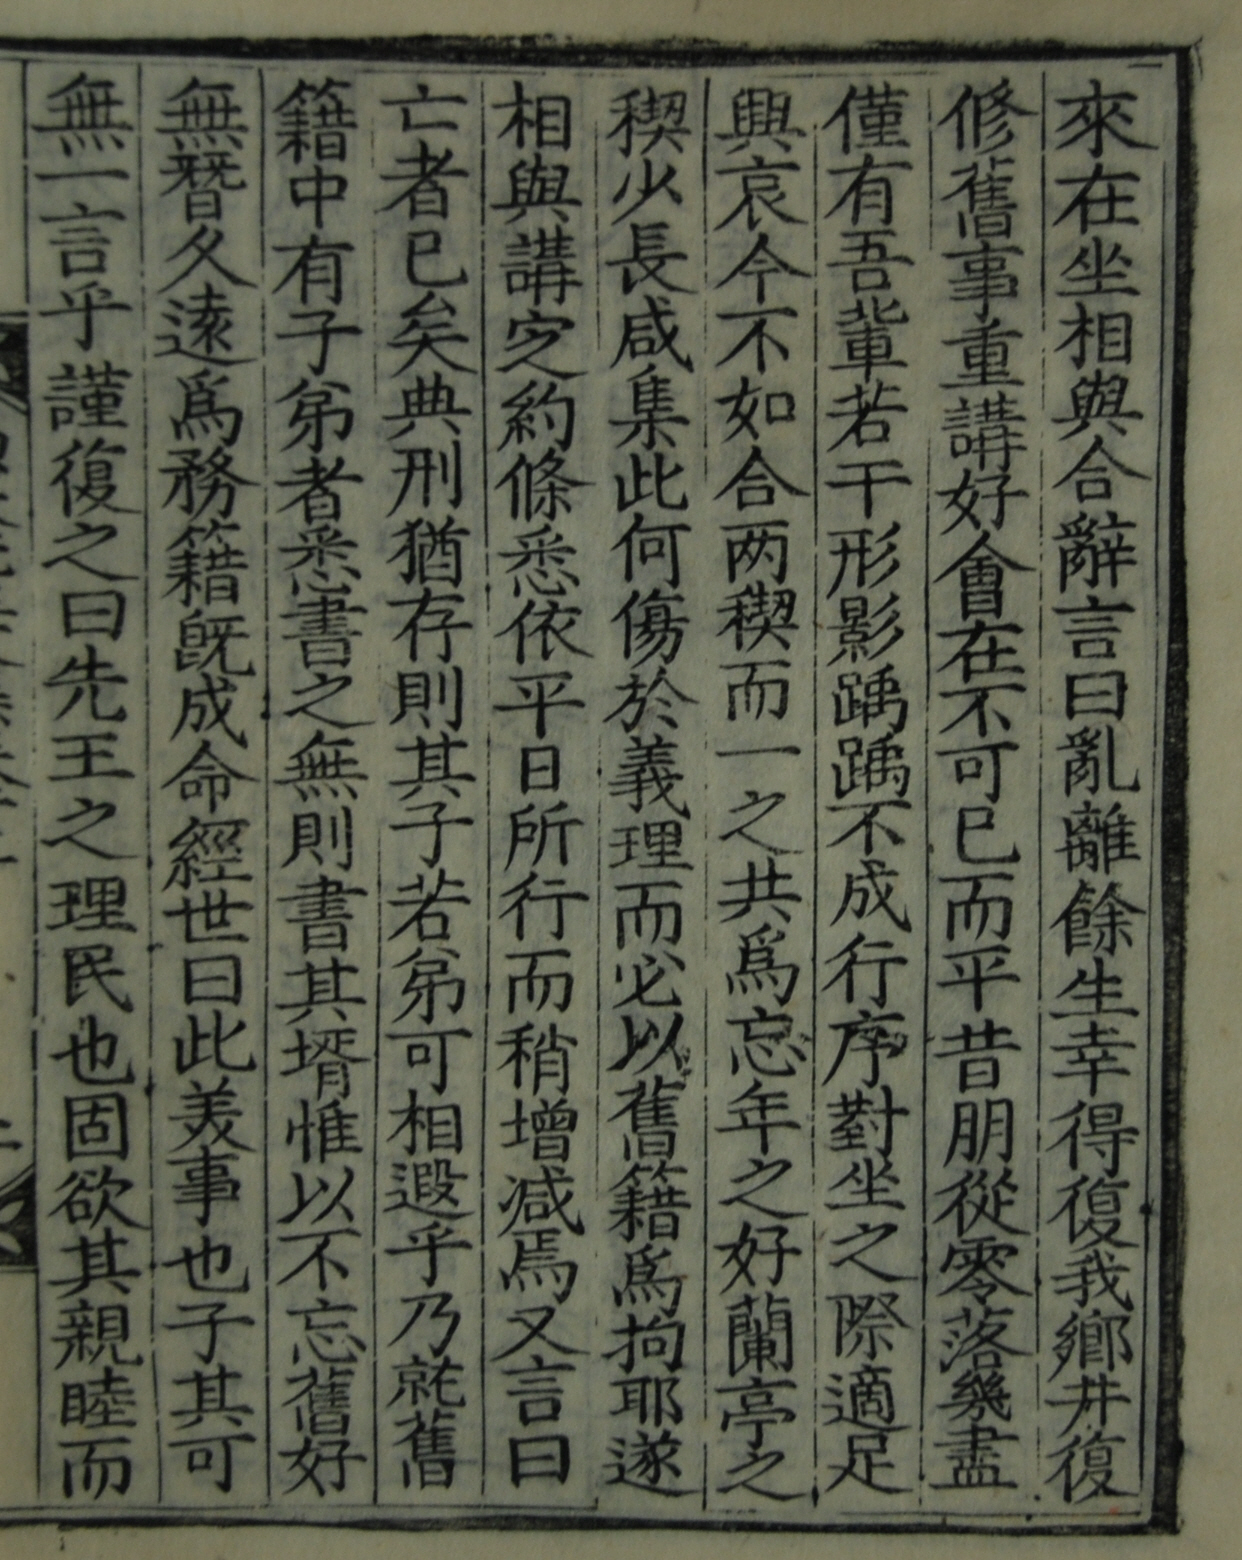 來在坐相與合辭言曰亂離餘生幸得復我鄉井復
修舊事重講好會在不可已而平昔朋從零落幾盡
僅有吾輩若干形影踽踽不成行序對坐之際適足
興哀今不如合两稧而一之共爲忘年之好蘭亭之
稧少長咸集此何傷於義理而必以舊籍爲拘耶遂
相與講定約條悉依平日所行而稍增减焉又言曰
亡者已矣典刑猶存則其子若弟可相遐乎乃就舊
籍中有子弟者悉書之無則書其壻惟以不忘舊好
無替久遠爲務籍旣成命經世曰此美事也子其可
無一言乎謹復之曰先王之理民也固欲其親睦而